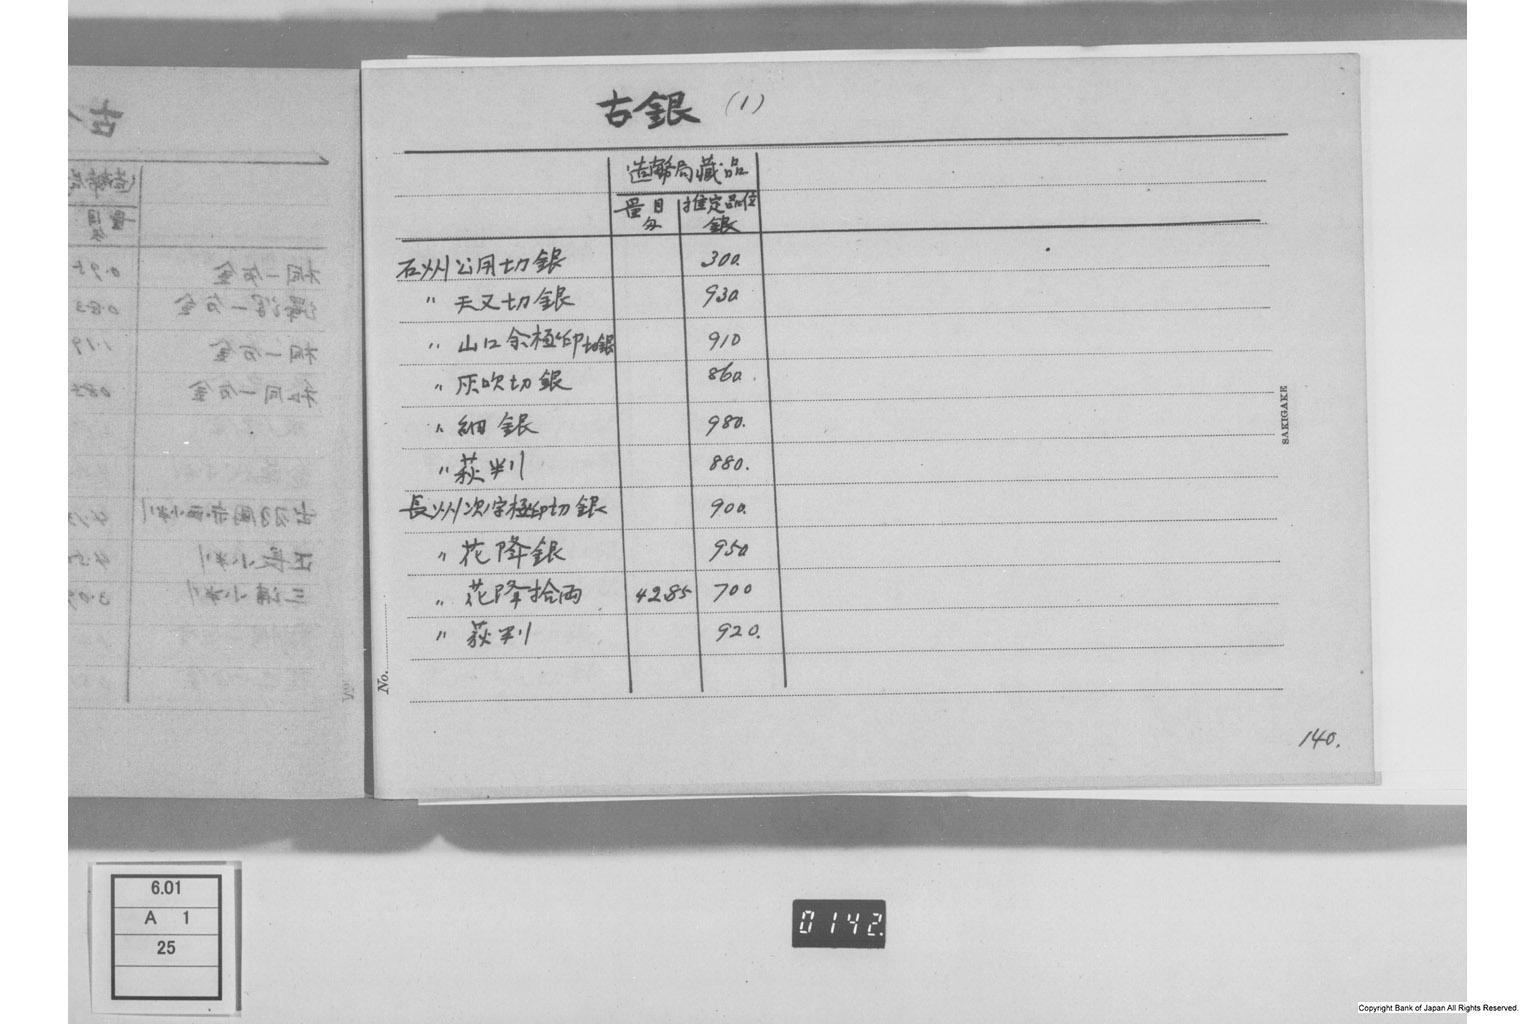 古銀 (1)
造幣局藏品
量目 匁
推定品位 銀
石州公用切銀 300.
〃 天又切銀 930
〃 山口余極印切銀 910
〃 灰吹切銀 860.
〃 細銀 980.
〃 萩判 880.
長州次字極印切銀 900.
〃 花降銀 950
〃 花降拾両 42.85 700
〃 萩判 920.
No.
SAKIGAKE
140.
6.01
A 1
25
0142.
Copyright Bank of Japan All Rights Reserved.